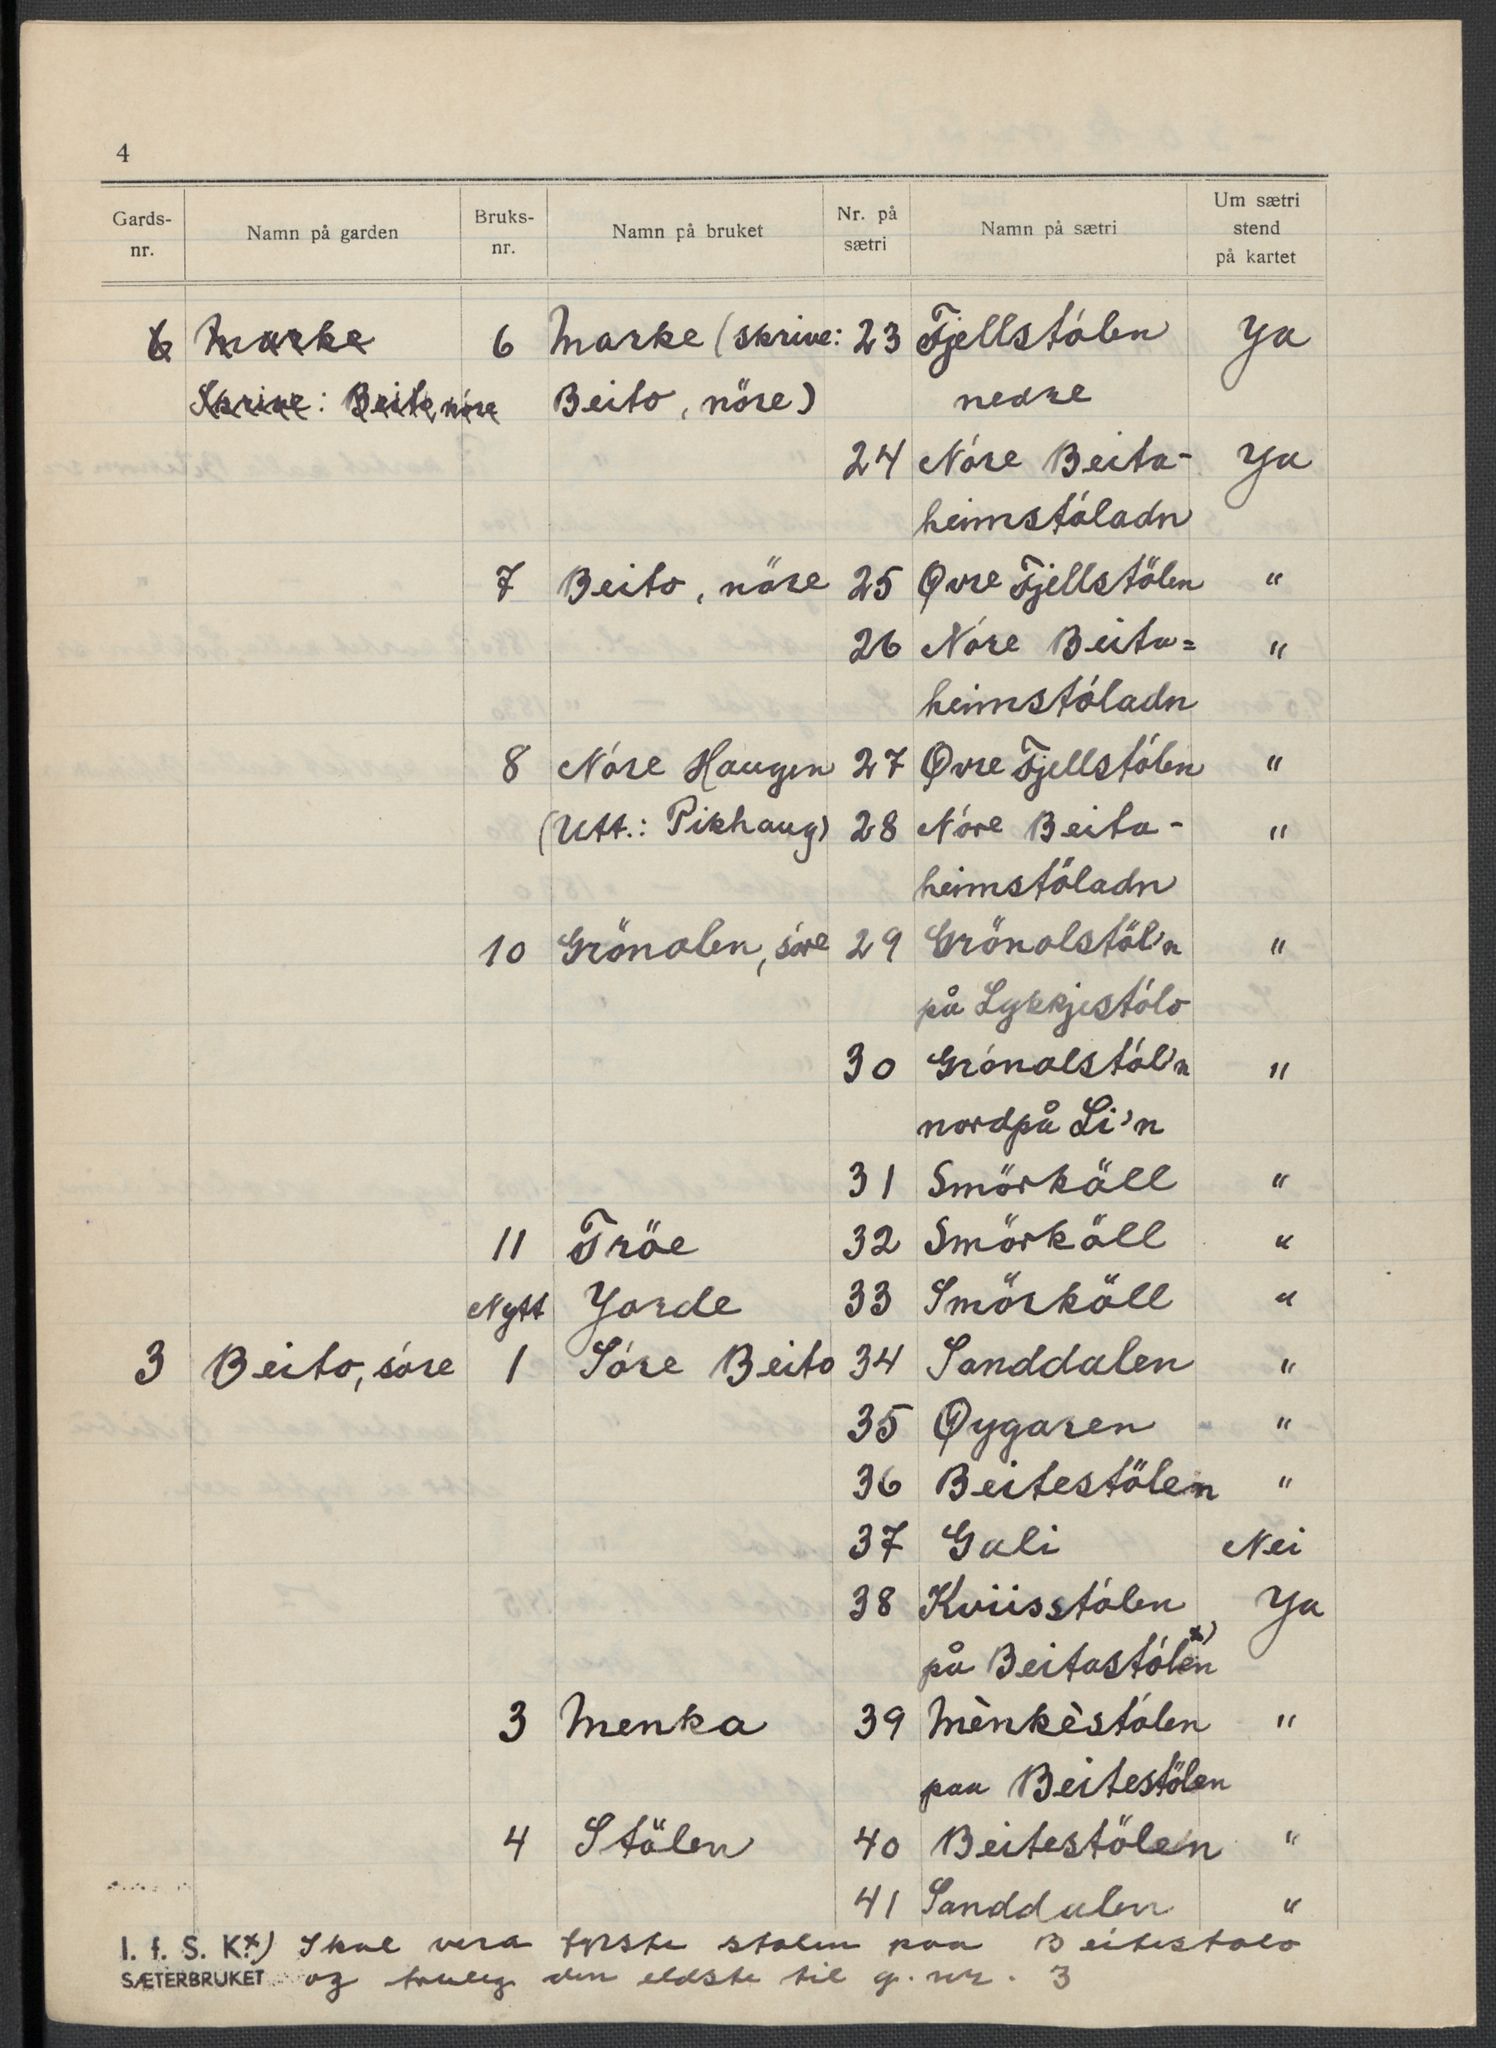 4
Gards-nr. Namn på garden Bruks-nr. Namn på bruket Nr. på sætri Namn på sætri Um sætri stend på kartet
6 Marke 6 Marke (skrive: 23 Fjellstölen Ya
Skrive: Beito, nöre Beito, nöre) nedre
24 Nöre Beita- Ya
heimstöladn
7 Beito, nöre 25 Øvre Fjellstölen "
26 Nöre Beita= "
heimstöladn
8 Nöre Haugen 27 Øvre Fjellstölen "
(Utt.: Pikhaug) 28 Nöre Beita- "
heimstöladn
10 Grönolen, söre 29 Grönolstöl'n "
på Lykkjestölo
30 Grönolstöl'n "
nordpå Li'n
31 Smörköll "
11 Tröe 32 Smörköll "
Nytt Yorde 33 Smörköll "
3 Beito, söre 1 Söre Beito 34 Sanddalen "
35 Øygaren "
36 Beitestölen "
37 Gali Nei
38 Kviisstölen Ya
på Beitastölen x)
3 Menka 39 Mènkèstölen "
paa Beitestölen
4 Stölen 40 Beitestölen "
41 Sanddalen "
I. f. S. K. x) Skal vera fyrste stølen paa Beitestølo
SÆTERBRUKET og truleg den eldste til g. nr. 3